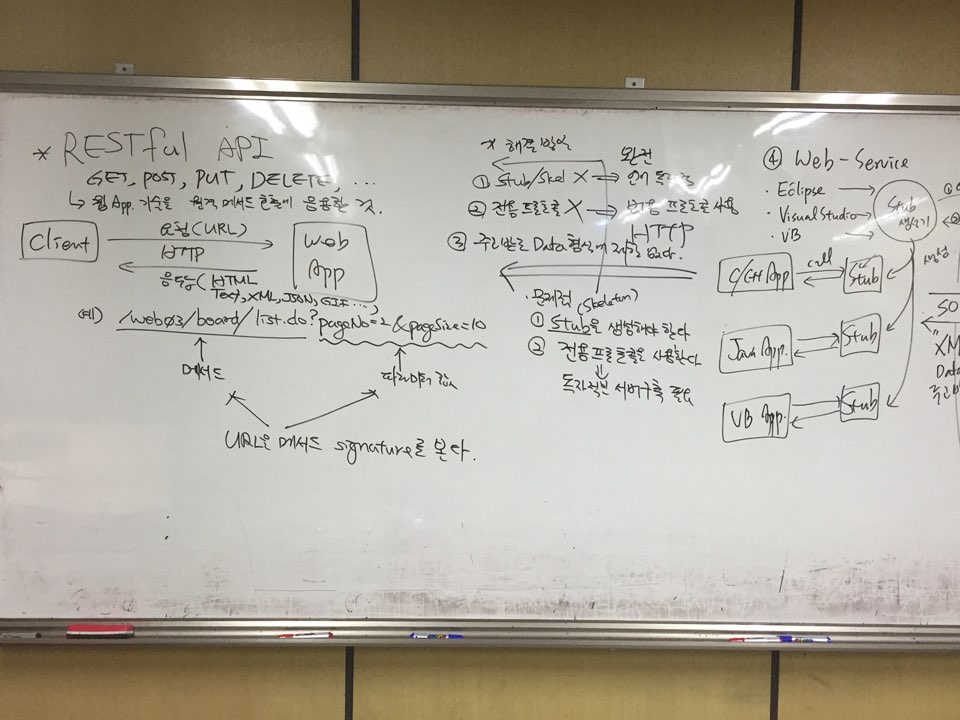 * RESTful API
GET, POST, PUT, DELETE, ...
↳ 웹 App. 기술을 원격 메서드 호출에 응용한 것.
Client
요청(URL)
HTTP
응답(HTML
Text, XML, JSON, GIF ...)
Web
App
예) /web03/board/list.do?pageNo=2&pageSize=10
메서드
파라미터 값
URL은 메서드 signature를 본다.
* 해결방안
① Stub/Skel X →
② 전용 프로토콜 X → 범용 프로토콜 사용
HTTP
③ 주고받는 Data 형식에 제한 없다.
· 문제점 (skeleton)
① Stub을 생성해야 한다
② 전용 프로토콜을 사용한다
⇓
독자적인 서버구축 필요
④ Web-Service
· Eclipse
· Visual Studio
· VB
Stub
생성기
생성
C/C++ App
call
Stub
Java App.
Stub
VB App.
Stub
SO
"XM
Data
주고